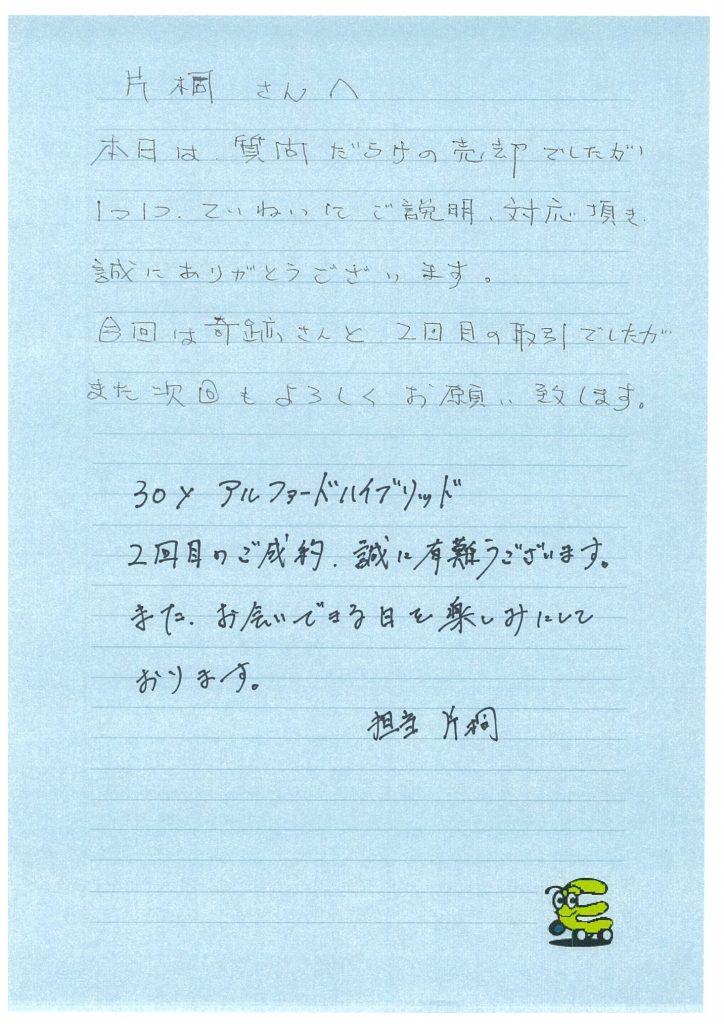 片桐さんへ
本日は、質問だらけの売却でしたが
1つ1つ、ていねいにご説明、対応頂き
誠にありがとうございます。
今回は奇跡さんと2回目の取引でしたが
また次回もよろしくお願い致します。
30y アルファードハイブリッド
2回目のご成約、誠に有難うございます。
また、お会いできる日を楽しみにして
おります。
担当 片桐